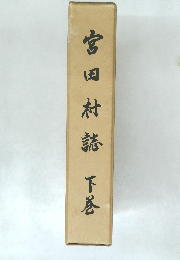 宮田村誌 下巻